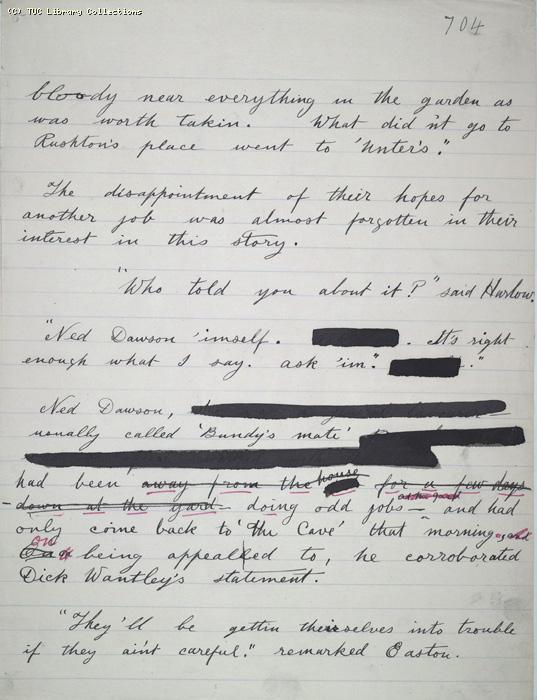 (C) TUC Library Collections
704
bloody near everything in the garden as
was worth takin. What did n't go to
Rushton's place went to 'Unter's."
The disappointment of their hopes for
another job was almost forgotten in their
interest in this story.
"Who told you about it?" said Harlow.
"Ned Dawson 'imself. . It's right
enough what I say. ask 'im." ."
Ned Dawson,
usually called 'Bundy's mate'
had been away from the house for a few days
down at the yard doing odd jobs — and had
only come back to 'the Cave' that morning, and
on being appealed to, he corroborated
Dick Wantley's statement.
"They'll be gettin theirselves into trouble
if they ain't careful." remarked Easton.